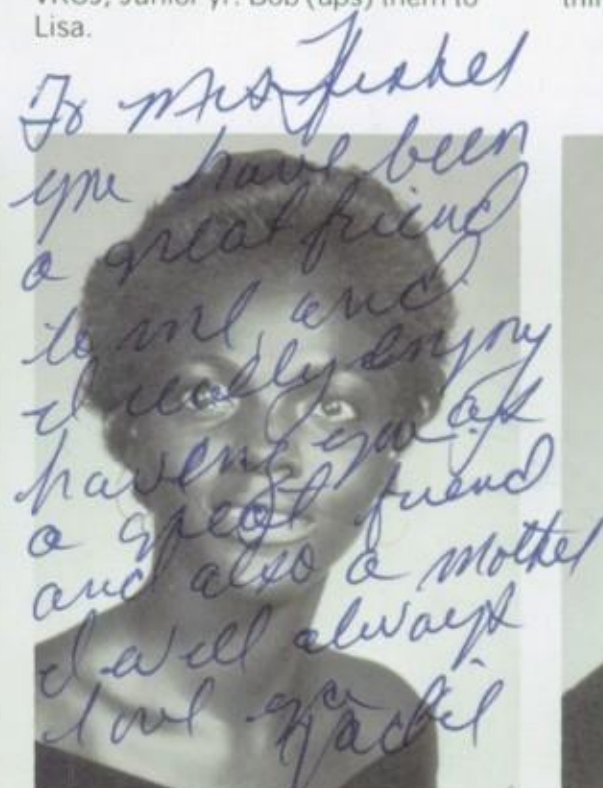 Lisa.
To Mrs Finkel
you have been
a great friend
to me, and
I really enjoy
having you as
a great friend
and also a mother
I will always
love you
Rachel